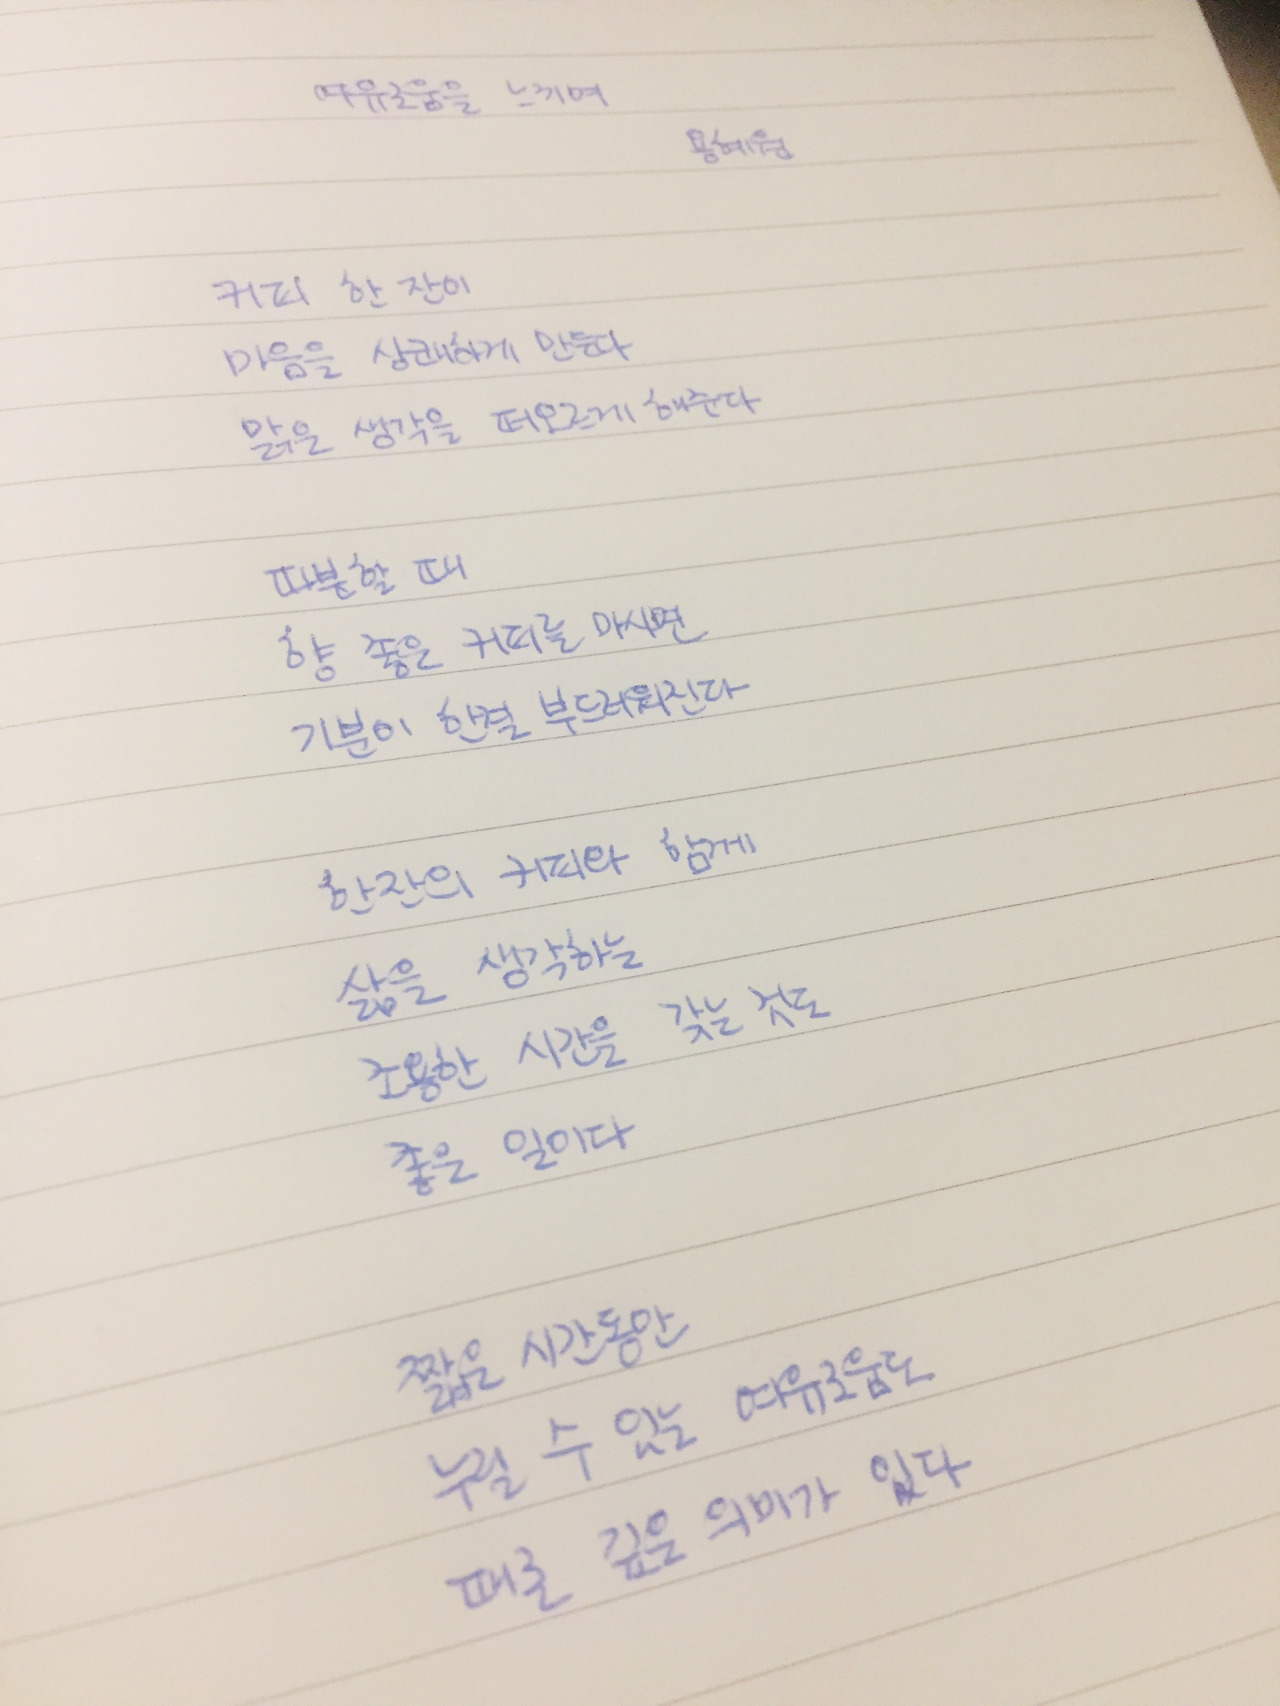 여유로움을 느끼며
용혜원
커피 한 잔이
마음을 상쾌하게 만든다
맑은 생각을 떠오르게 해준다
따분할 때
향 좋은 커피를 마시면
기분이 한결 부드러워진다
한잔의 커피와 함께
삶을 생각하는
조용한 시간을 갖는 것도
좋은 일이다
짧은 시간동안
누릴 수 있는 여유로움도
때론 깊은 의미가 있다